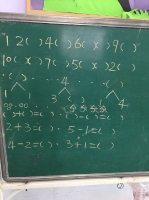 1 2 ( ) 4 ( ) 6 ( x ) 9 ( )
10 ( x ) 7 ( ) 5 ( ) 2 ( )
( ) 4 ( )
1 1 3 ( ) 1 4
( ) + ( ) = ( ) ( ) - ( ) = ( )
2 + 3 = ( ) . 5 - 1 = ( )
4 - 2 = ( ) . 3 + 1 = ( )